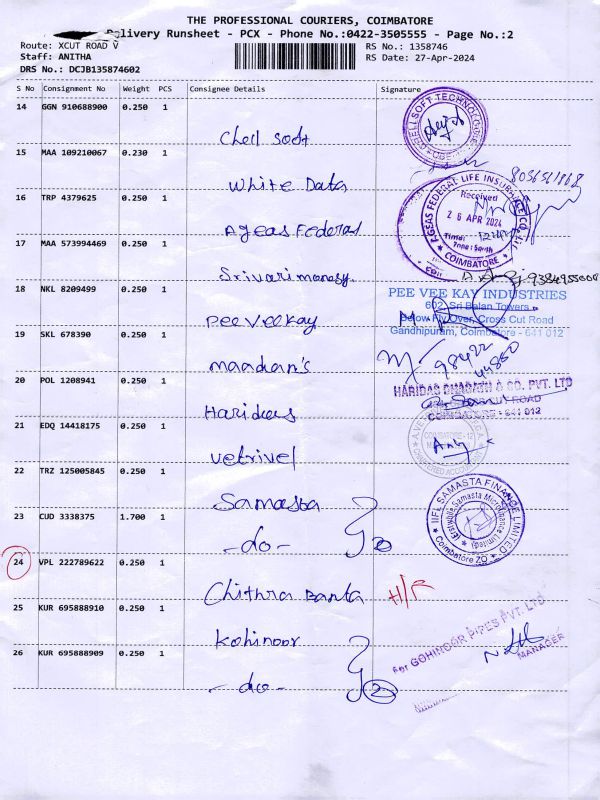 THE PROFESSIONAL COURIERS, COIMBATORE
Delivery Runsheet - PCX - Phone No.:0422-3505555 - Page No.:2
Route: XCUT ROAD V
RS No.: 1358746
Staff: ANITHA
RS Date: 27-Apr-2024
DRS No.: DCJB135874602
S No Consignment No Weight PCS Consignee Details Signature
14 GGN 910688900 0.250 1
Chell Soft
15 MAA 109210067 0.230 1
White Data
16 TRP 4379625 0.250 1
Ageas Federal
AGEAS FEDERAL LIFE INSURANCE CO.
Received
26 APR 2024
Time:
Zone: South
COIMBATORE
17 MAA 573994469 0.250 1
Srivarimanasy
9384955008
18 NKL 8209499 0.250 1
Pee Vee Kay
PEE VEE KAY INDUSTRIES
602, Sri Balan Towers
Below Fly Over, Cross Cut Road
Gandhipuram, Coimbatore - 641 012
19 SKL 678390 0.250 1
maadhan's
98422
44860
20 POL 1208941 0.250 1
Haridas
HARIDAS BHAGATH & CO. PVT. LTD
ROAD
COIMBATORE - 641 012
21 EDQ 14418175 0.250 1
Vetrivel
22 TRZ 125005845 0.250 1
Samasta
IIFL SAMASTA FINANCE LIMITED
(Erstwhile Samasta Microfinance Limited)
Coimbatore ZO
23 CUD 3338375 1.700 1
-do- 2
24 VPL 222789622 0.250 1
Chithra Banta H/R
25 KUR 695888910 0.250 1
Kohinoor
For GOHINOOR PIPES PVT. LTD
MANAGER
26 KUR 695888909 0.250 1
-do- 2